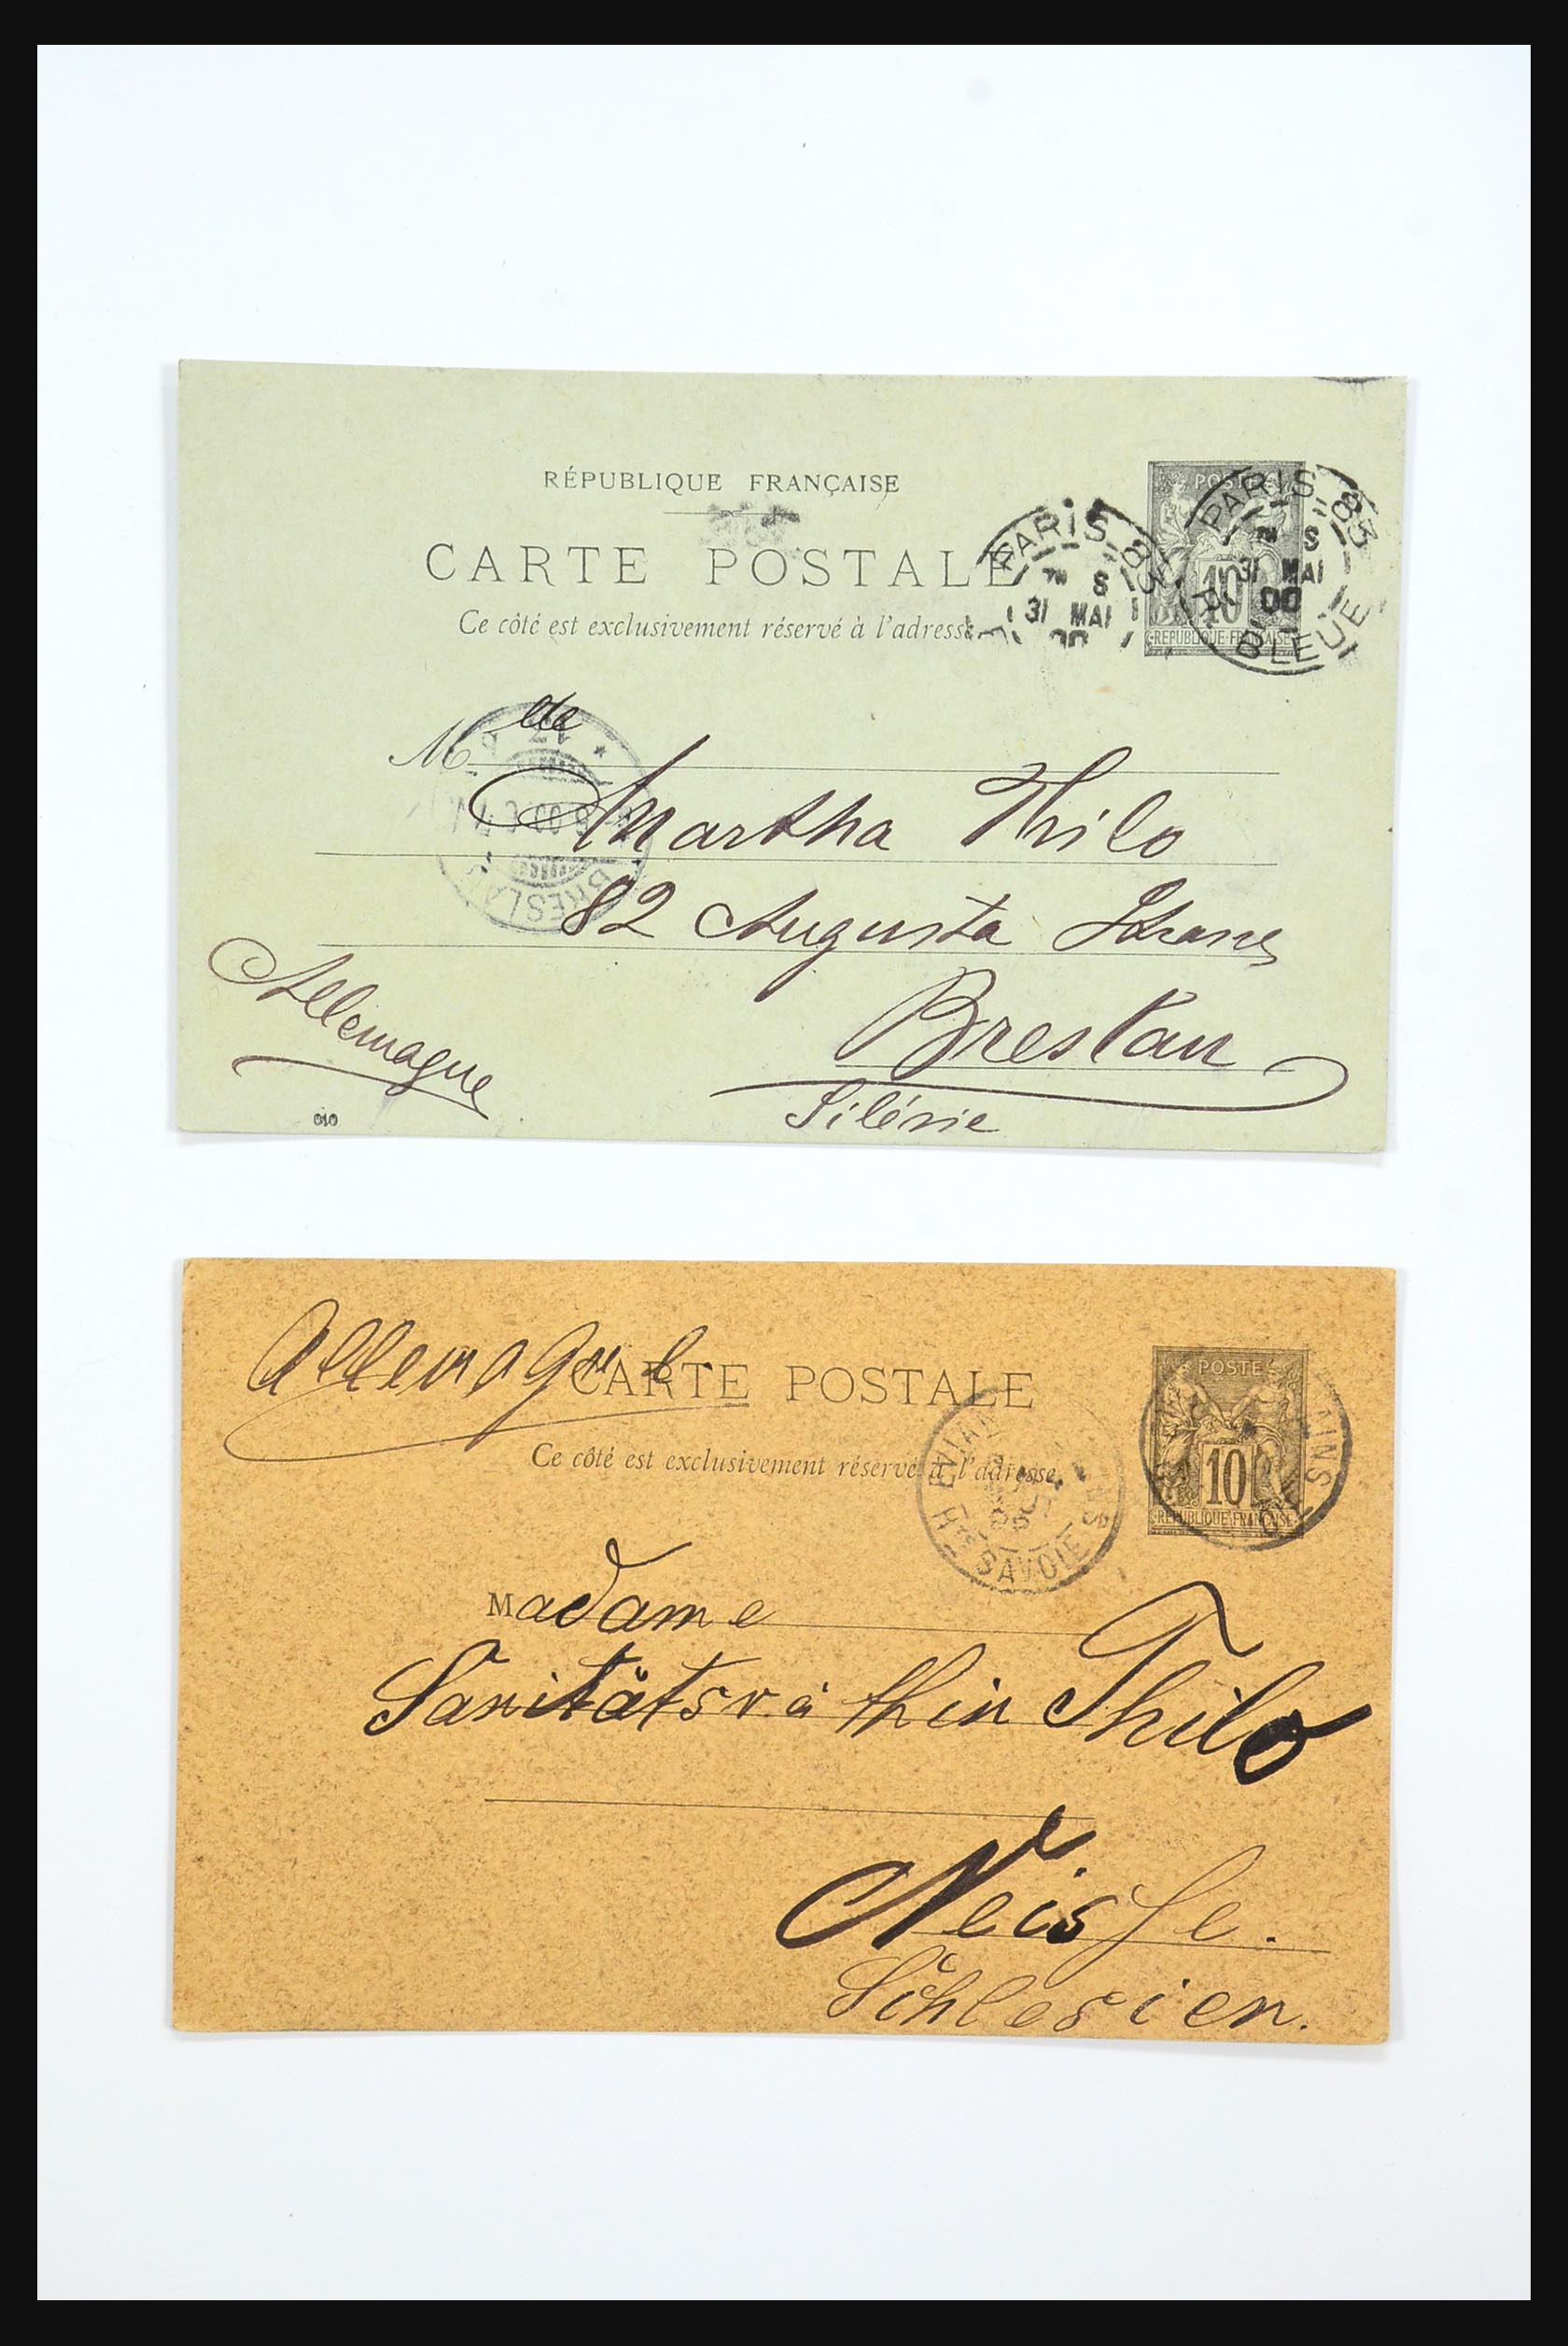 RÉPUBLIQUE FRANÇAISE
CARTE POSTALE
Ce côté est exclusivement réservé à l'adresse
POSTE
10
REPUBLIQUE FRANÇAISE
PARIS 83
7 S
31 MAI
00
PARIS 83
7 S
31 MAI
00
BLEUE
BRESLAU
Mde
Martha Thilo
82 Augusta Strasse
Breslau
Silésie
Allemagne
010
Allemagne
CARTE POSTALE
Ce côté est exclusivement réservé à l'adresse.
POSTE
10
REPUBLIQUE FRANÇAISE
EVIAN
HTE SAVOIE
Madame
Sanitätsräthin Thilo
Neisse.
Schlesien.